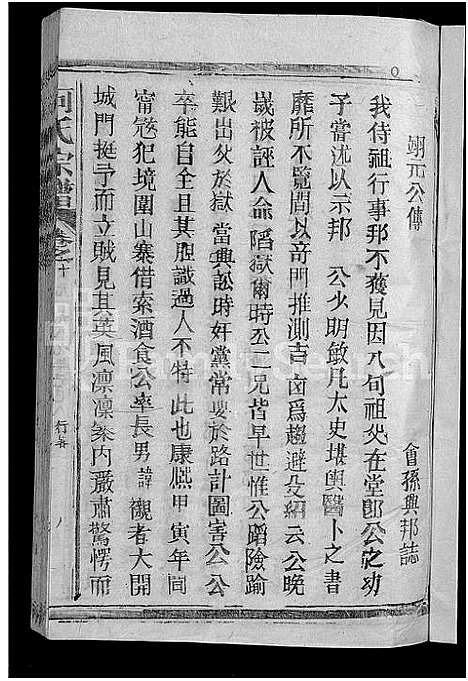 翊元公傳
會孫興邦誌
我侍祖行事邦不獲見因八旬祖父在堂卽公之功
子當述以示邦 公少明敏凡太史堪輿醫卜之書
靡所不覽間以竒門推測吉凶爲趨避殳紹云公晚
歲被誣人侖陷獄爾時公二兄皆早世惟公蹈險踰
艱出父於獄當興訟時奸黨常要於路計圖害公公
卒能自全且其胆識過人不特此也康熈甲寅年間
甯冦犯境圍山寨借索酒食公率長男諱觀者大開
城門挺予而立賊見其英風凛凛寨内嚴肅驚愕而
何氏宗譜
卷之十
行畧